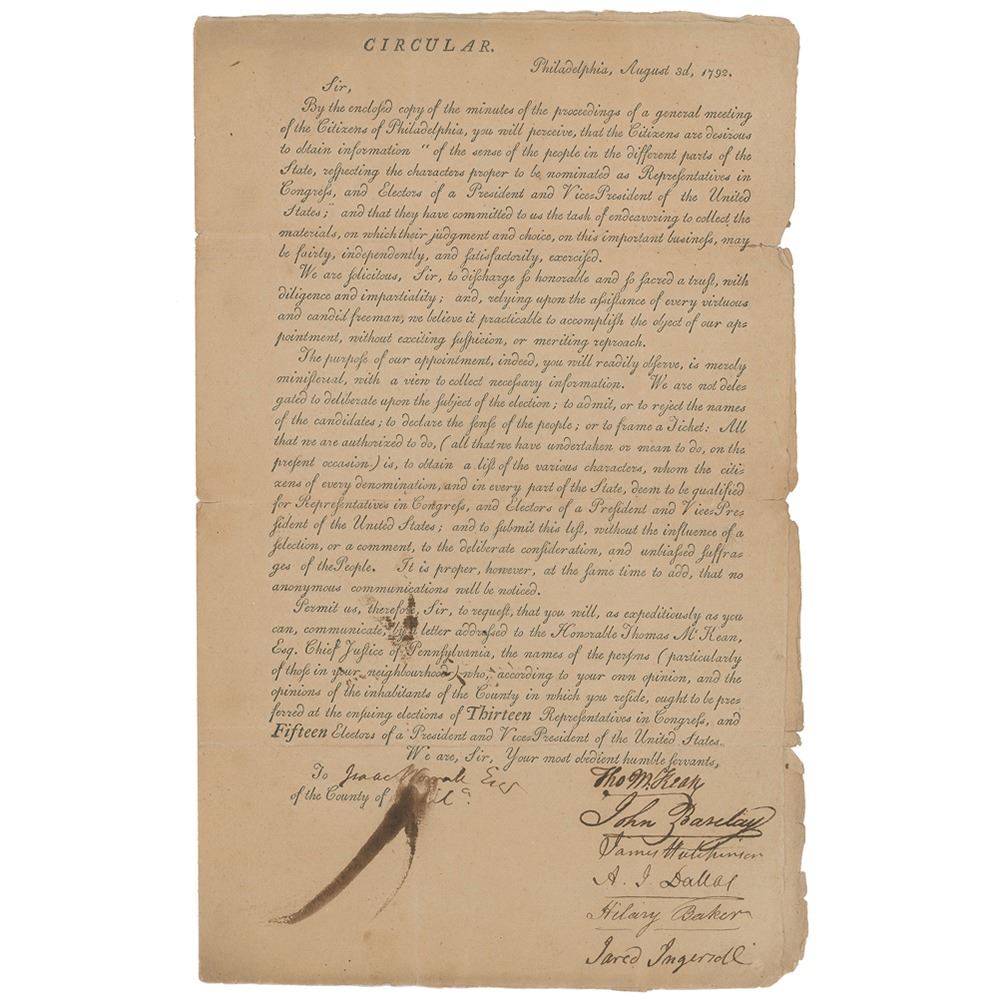 CIRCULAR.
Philadelphia, August 3d, 1792.
Sir,
By the enclosed copy of the minutes of the proceedings of a general meeting
of the Citizens of Philadelphia, you will perceive, that the Citizens are desirous
to obtain information " of the sense of the people in the different parts of the
State, reſpecting the characters proper to be nominated as Repreſentatives in
Congreſs, and Electors of a President and Vice=President of the United
States;" and that they have committed to us the task of endeavoring to collect the
materials, on which their judgment and choice, on this important buſineſs, may
be fairly, independently, and ſatisfactorily, exerciſed.
We are ſolicitous, Sir, to diſcharge ſo honorable and ſo ſacred a truſt, with
diligence and impartiality; and, relying upon the aſſiſtance of every virtuous
and candid freeman, we believe it practicable to accompliſh the object of our ap=
pointment, without exciting ſuſpicion, or meriting reproach.
The purpoſe of our appointment, indeed, you will readily obſerve, is merely
miniſterial, with a view to collect neceſſary information. We are not dele=
gated to deliberate upon the ſubject of the election; to admit, or to reject the names
of the candidates; to declare the ſenſe of the people; or to frame a Ticket: All
that we are authorized to do, (all that we have undertaken or mean to do, on the
preſent occasion) is, to obtain a liſt of the various characters, whom the citi=
zens of every denomination, and in every part of the State, deem to be qualified
for Repreſentatives in Congreſs, and Electors of a Preſident and Vice=Pre=
ſident of the United States; and to ſubmit this liſt, without the influence of a
ſelection, or a comment, to the deliberate conſideration, and unbiaſſed ſuffra=
ges of the People. It is proper, however, at the ſame time to add, that no
anonymous communications will be noticed.
Permit us, therefore, Sir, to requeſt, that you will, as expeditiously as you
can, communicate, by a letter addreſſed to the Honorable Thomas Mc Kean,
Esq. Chief Juſtice of Pennſylvania, the names of the perſons (particularly
of thoſe in your neighbourhood) who, according to your own opinion, and the
opinions of the inhabitants of the County in which you reſide, ought to be pre=
ferred at the enſuing elections of Thirteen Repreſentatives in Congreſs, and
Fifteen Electors of a President and Vice=President of the United States.
We are, Sir, Your most obedient humble ſervants,
To Isaac Esqr
of the County of
Tho M:Kean
John Barclay
James Hutchinson
A. J. Dallas
Hilary Baker
Jared Ingersoll